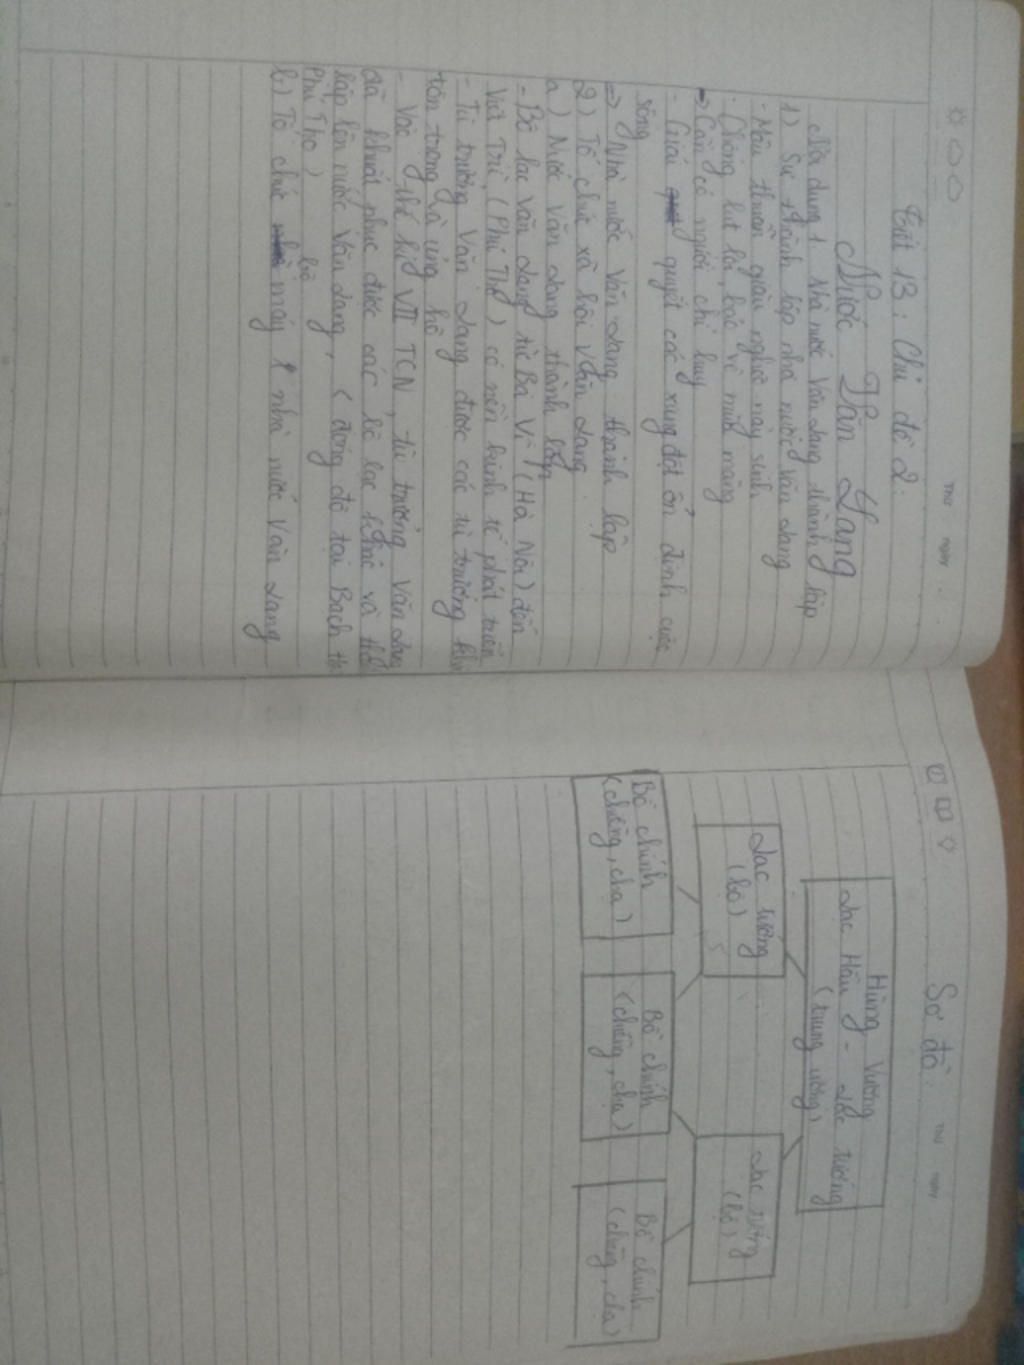 Tiết 13: Chủ đề 2:
Nước Văn Lang
Nội dung 1. Nhà nước Văn Lang thành lập
1) Sự thành lập nhà nước Văn Lang
- Mâu thuẫn giàu nghèo nảy sinh
- Chống lụt lội, bảo vệ mùa màng
=> Cần có người chỉ huy
- Giải quyết các xung đột ổn định cuộc
sống
=> Nhà nước Văn Lang thành lập
2) Tổ chức xã hội Văn Lang.
a) Nước Văn Lang thành lập
- Bộ lạc Văn Lang từ Ba Vì (Hà Nội) đến
Việt Trì (Phú Thọ) có nền kinh tế phát triển
- Tù trưởng Văn Lang được các tù trưởng khác
tôn trọng và ủng hộ
- Vào thế kỷ VII TCN, tù trưởng Văn Lang
đã khuất phục được các bộ lạc khác và
lập lên nước Văn Lang, (đóng đô tại Bạch
Phú Thọ)
bộ
b) Tổ chức máy nhà nước Văn Lang
THỨ NGÀY
Sơ đồ:
THỨ NGÀY
Hùng Vương
Lạc Hầu - Lạc tướng
(trung ương)
Lạc tướng
(bộ)
Lạc tướng
(bộ)
Bồ chính
(chiềng, chạ)
Bồ chính
(chiềng, chạ)
Bồ chính
(chiềng, chạ)